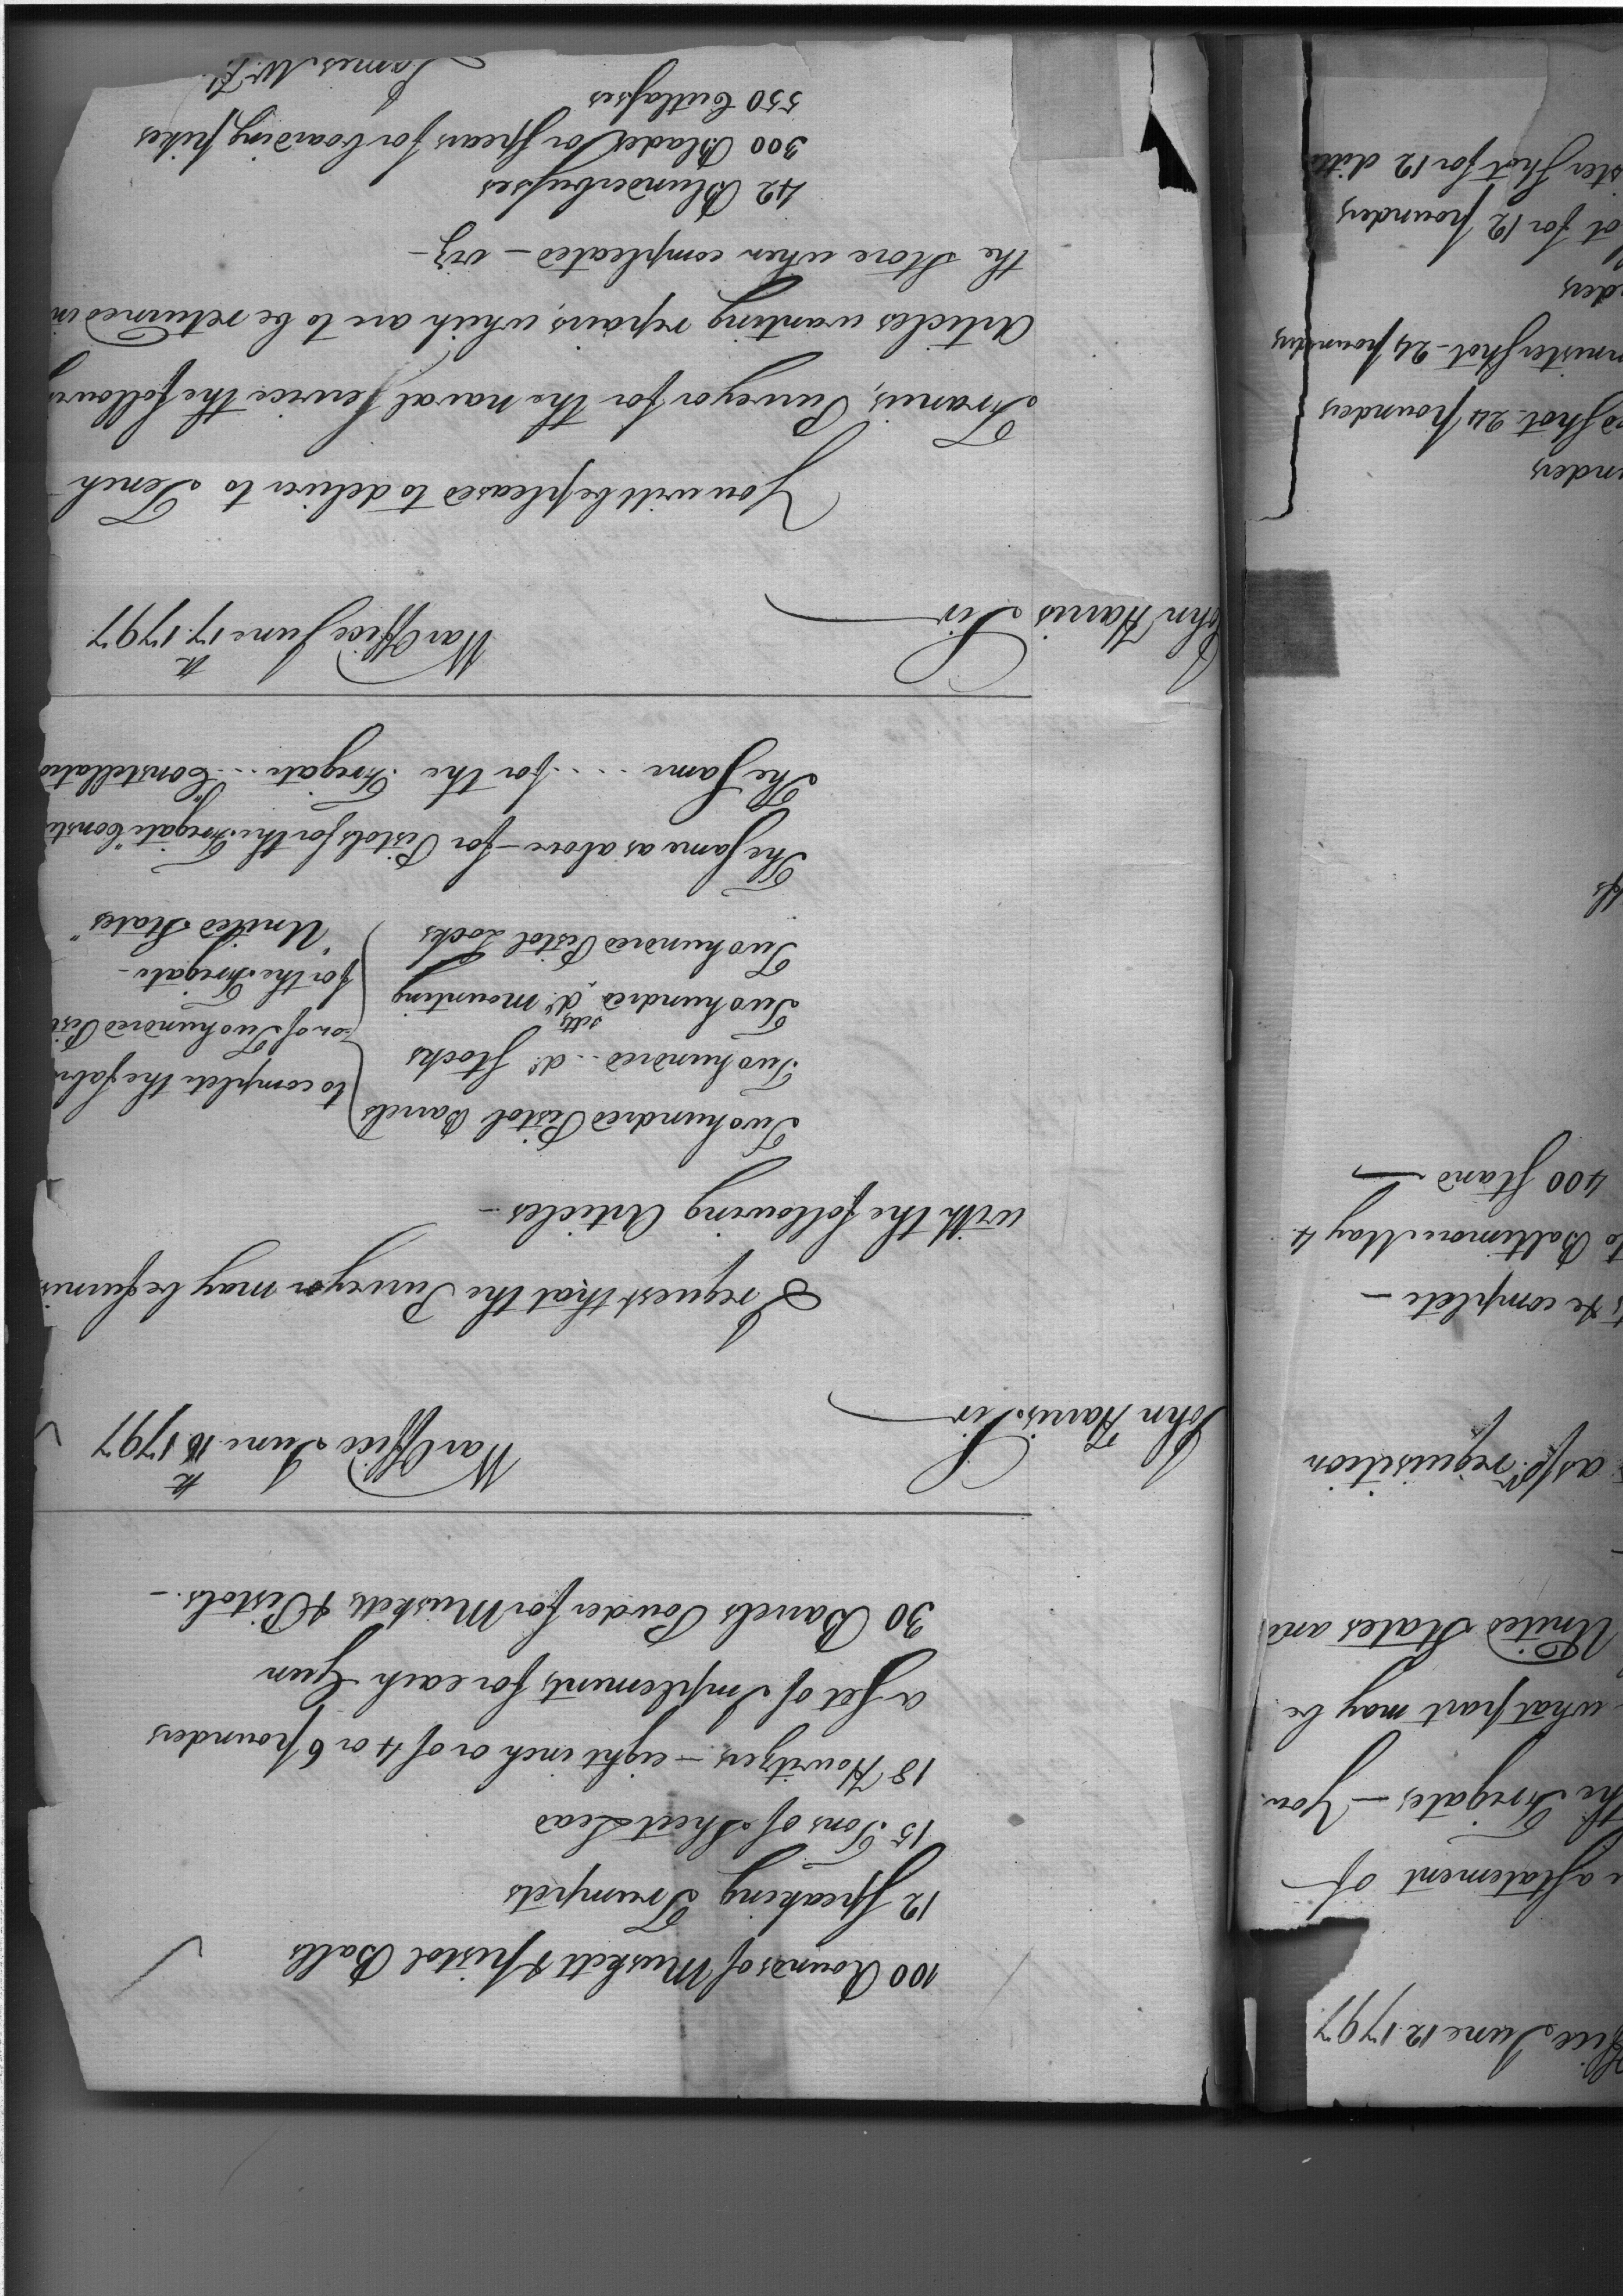 ffice June 12 1797
a statement of
the Frigates - You
what part may be
United States and
as pr. requisition
& complete -
to Baltimore May 4
400 Stand
unders
d Shot - 24 pounders
nnister Shot - 24 pounders
ders
ot for 12 pounders
ster Shot for 12 ditto
100 Rounds of Muskett & pistol Balls
12 Speaking Trumpets
15 Tons of Sheet Lead
18 Howitzers - eight inch or of 4 or 6 pounders
a Set of Implements for each Gun
30 Barrels Powder for Musketts & Pistols. -
War Office June 16th 1797
John Harris Sir
I request that the Purveyor may be furnis
with the following Articles -
Two hundred Pistol Barrels
Two hundred .. do. Stocks
Two hundred setts do. mounting
Two hundred Pistol Locks
to complete the fabri
on of Two hundred Pist
for the Frigate -
"United States"
The Same as above - for Pistols for the Frigate "Consti
The Same ... for the Frigate .. "Constellatio
War Office June 17th 1797
John Harris Sir
You will be pleased to deliver to Tench
Francis, Purveyor for the naval Service the followi
Articles wanting repairs, which are to be returned in
the Store when compleated - viz -
42 Blunderbusses
300 Blades or Spears for boarding pikes
550 Cutlasses
James McH.